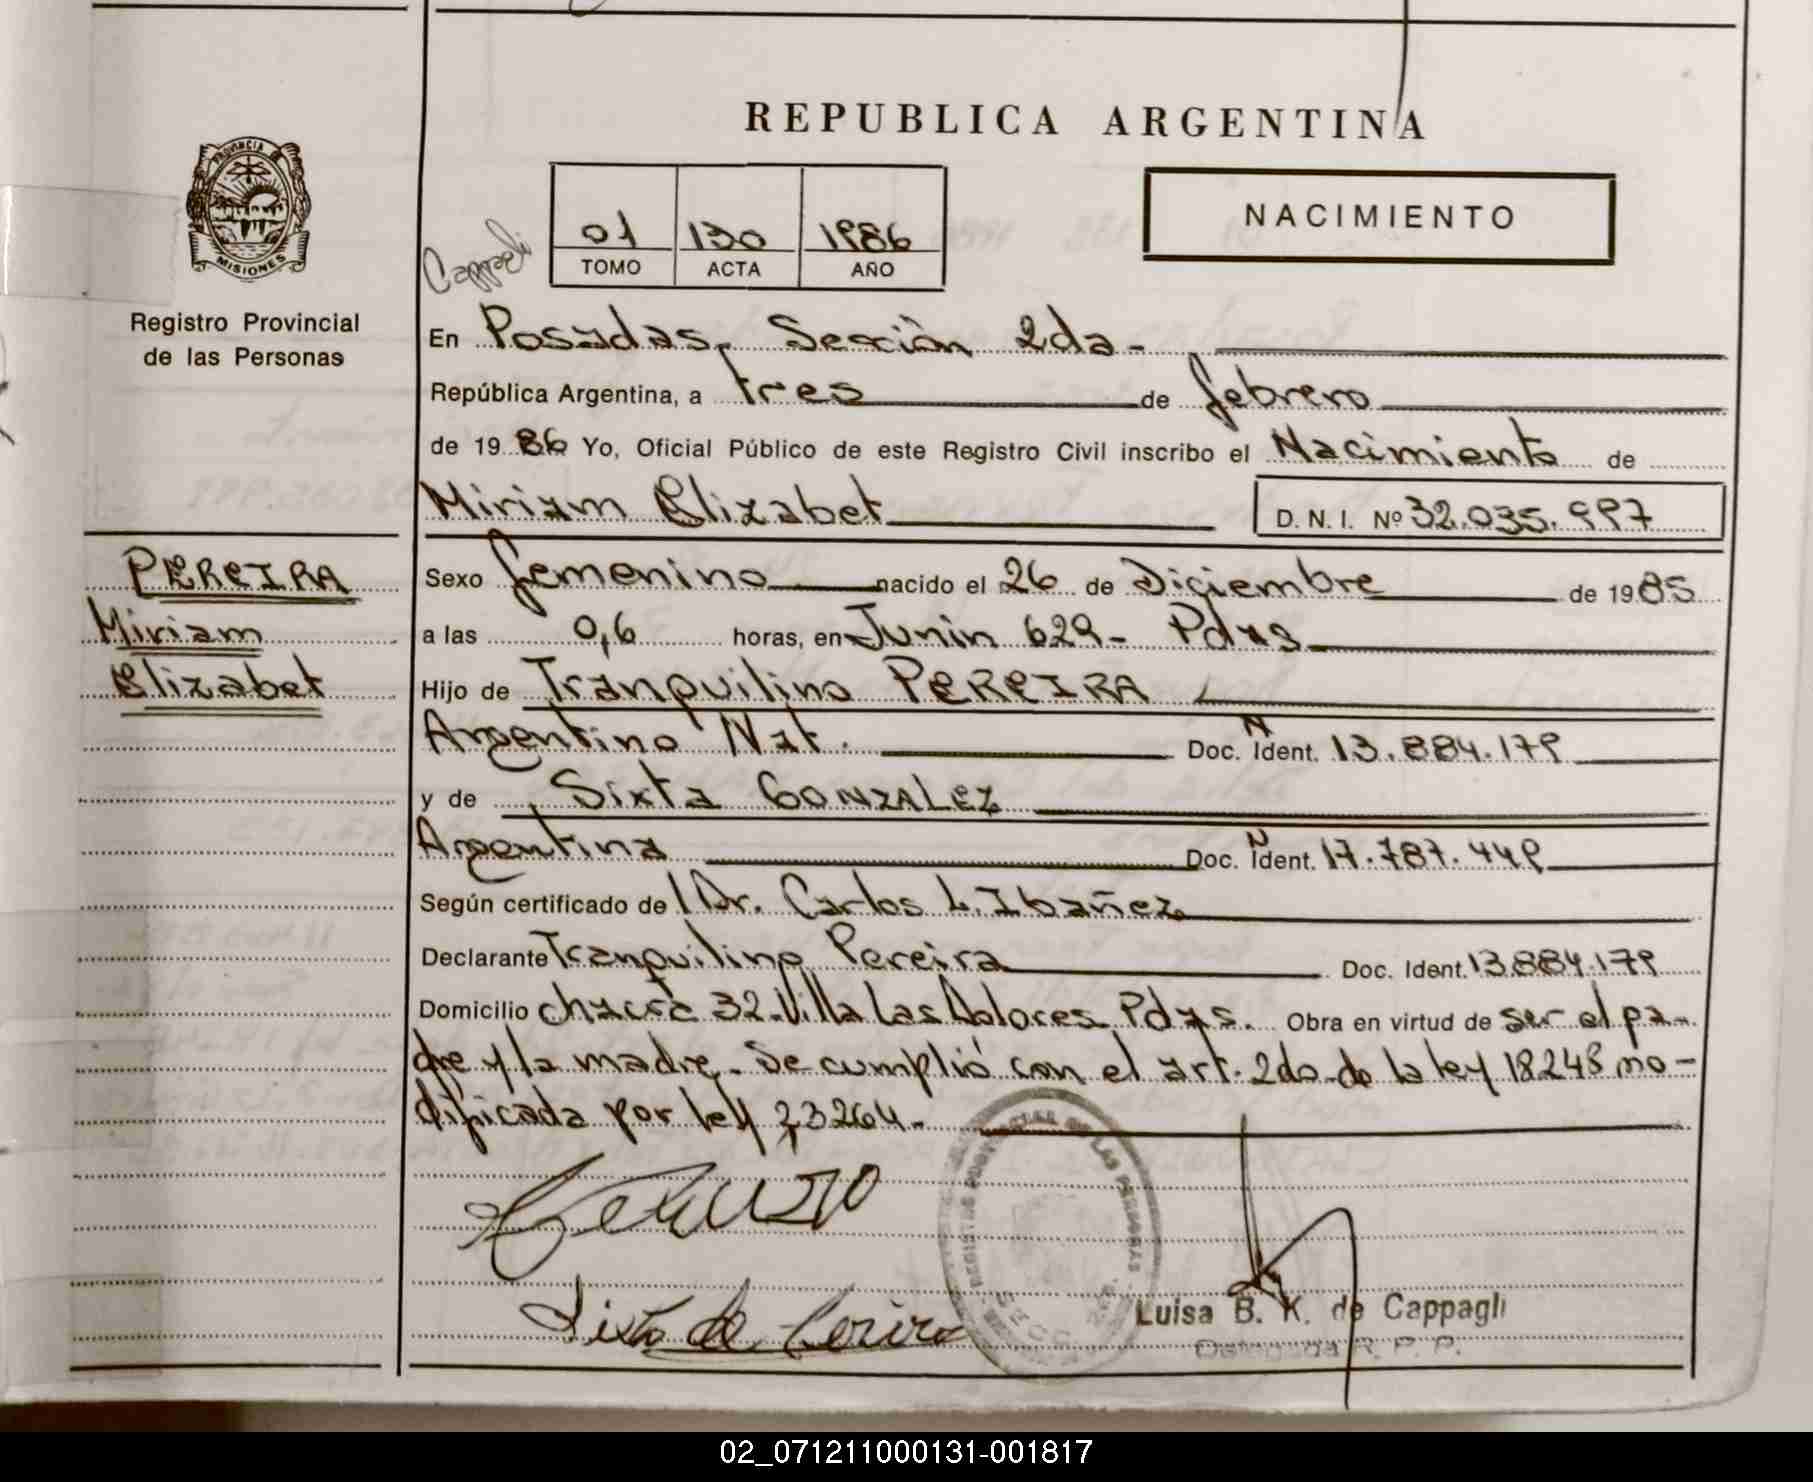 REPUBLICA ARGENTINA
PROVINCIA DE
MISIONES
Registro Provincial
de las Personas
Cappagli
01 130 1986
TOMO ACTA AÑO
NACIMIENTO
En Posadas, Sección 2da-
República Argentina, a tres de febrero
de 1986 Yo, Oficial Público de este Registro Civil inscribo el Nacimiento de
Miriam Elizabet D. N. I. Nº 32.035.997
PEREIRA
Miriam
Elizabet
Sexo femenino nacido el 26 de Diciembre de 1985
a las 0,6 horas, en Junin 629- Pdas
Hijo de Tranquilino PEREIRA
Argentino Nat. Doc. N Ident. 13.884.179
y de Sixta GONZALEZ
Argentina Doc. N Ident. 17.787.449
Según certificado de Dr. Carlos L. Ibañez
Declarante Tranquilino Pereira Doc. Ident. 13.884.179
Domicilio chacra 32-Villa Las Dolores Pdas. Obra en virtud de ser el pa-
dre y la madre. Se cumplió con el art. 2do de la ley 18248 mo-
dificada por ley 23264.
Sixta de Pereira
Luisa B. K. de Cappagli
Delegada R. P. P.
02_071211000131-001817